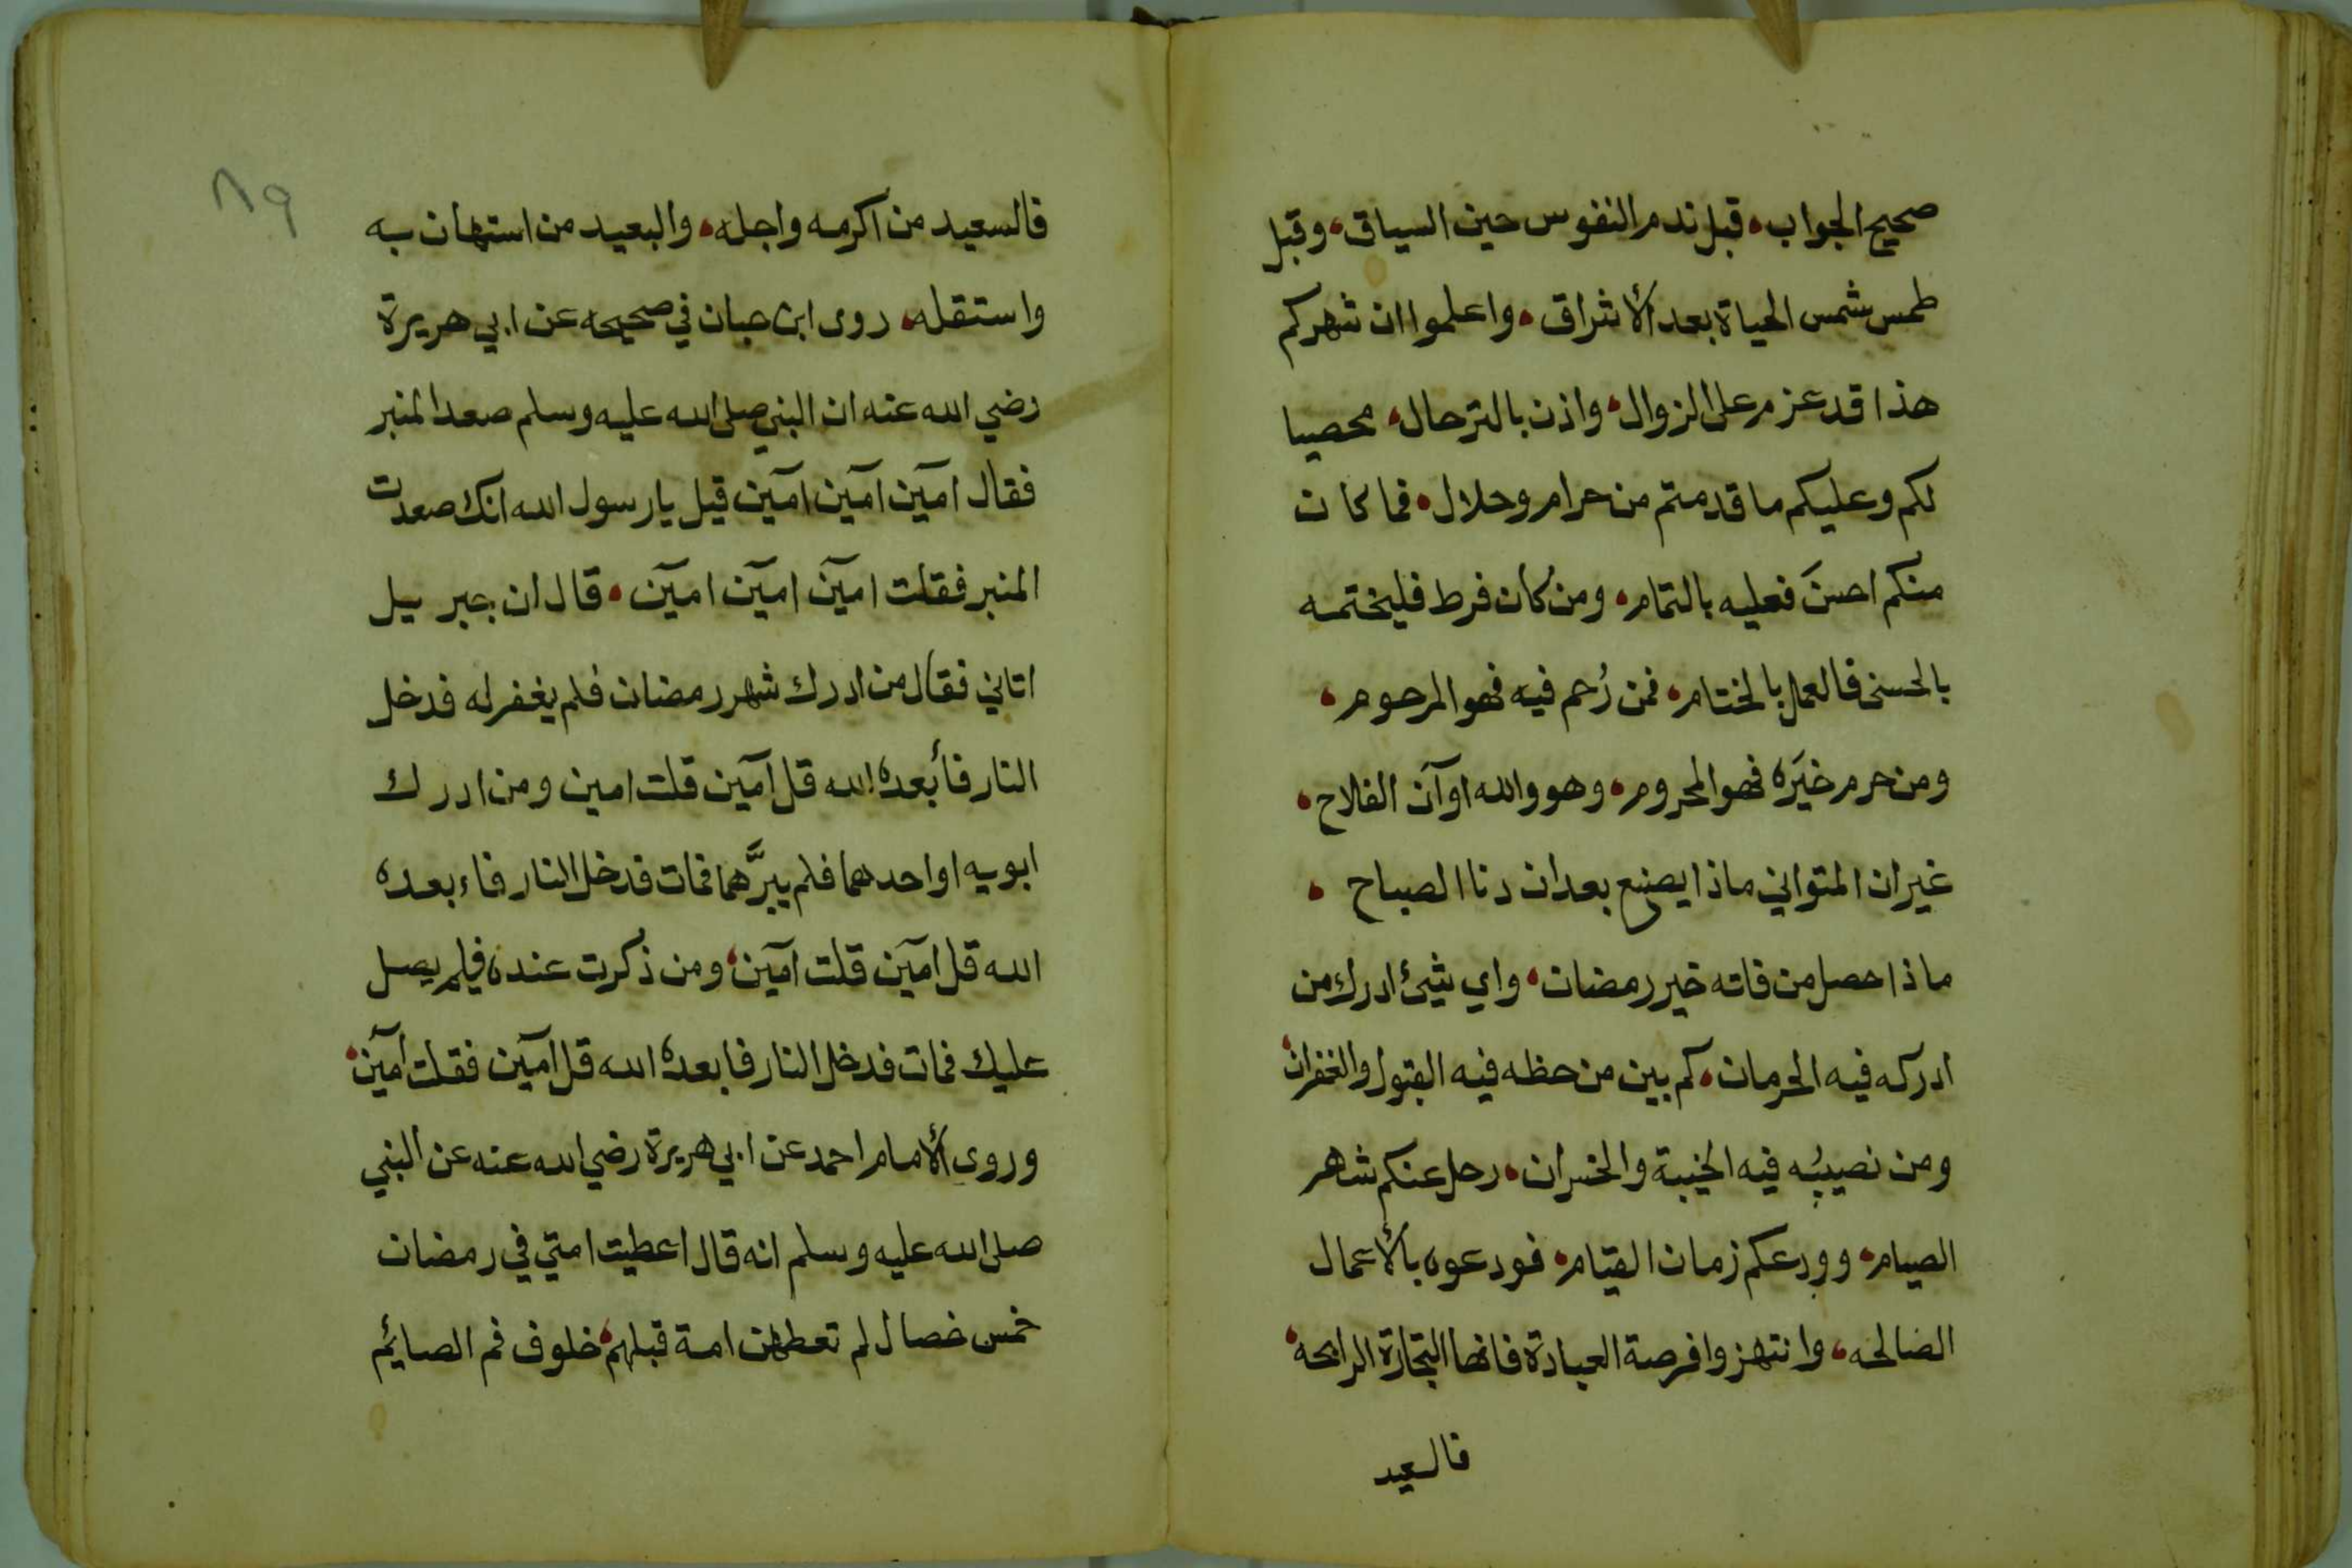 صحيح الجواب، قبل ندم النفوس حين السياق، وقبل
طمس شمس الحياة بعد الأشراق، واعلموا ان شهركم
هذا قد عزم على الزوال، واذن بالترحال، محصيا
لكم وعليكم ما قدمتم من حرام وحلال، فما كان
منكم احسنَ فعليه بالتمام، ومن كان فرط فليختمه
بالحسنى فالعمل بالختام، فمن رُحم فيه فهو المرحوم،
ومن حرم خيَره فهو المحروم، وهو والله اوآن الفلاح،
غير ان المتواني ماذا يصنع بعد ان دنا الصباح،
ماذا حصل من فاته خير رمضان، واي شيئ ادرك من
ادركه فيه الحرمان، كم بين من حظه فيه القبول والغفران،
ومن نصيبُه فيه الخيبة والخسران، رحل عنكم شهر
الصيام، وودعكم زمان القيام، فودعوه بالأعمال
الصالحه، وانتهزوا فرصة العبادة فانها التجارة الرابحة،
فالسعيد
٨٩
فالسعيد من اكرمه واجله، والبعيد من استهان به
واستقله، روى ابن حبان في صحيحه عن ابي هريرة
رضي الله عنه ان النبي صلى الله عليه وسلم صعد المنبر
فقال امآين امآين امآين قيل يا رسول الله انك صعدت
المنبر فقلت امآين امآين امآين، قال ان جبر ييل
اتاني فقال من ادرك شهر رمضان فلم يغفر له فدخل
النار فأبعده الله قل امآين قلت امين ومن ادرك
ابويه او احدهما فلم يبرَّهما فمات فدخل النار فاءبعده
الله قل امآين قلت امآين، ومن ذكرت عنده فلم يصل
عليك فمات فدخل النار فابعده الله قل امآين فقلت امآين،
وروى الأمام احمد عن ابي هريرة رضي الله عنه عن النبي
صلى الله عليه وسلم انه قال اعطيت امتي في رمضان
خمس خصال لم تعطهن امة قبلهم، خلوف فم الصائم